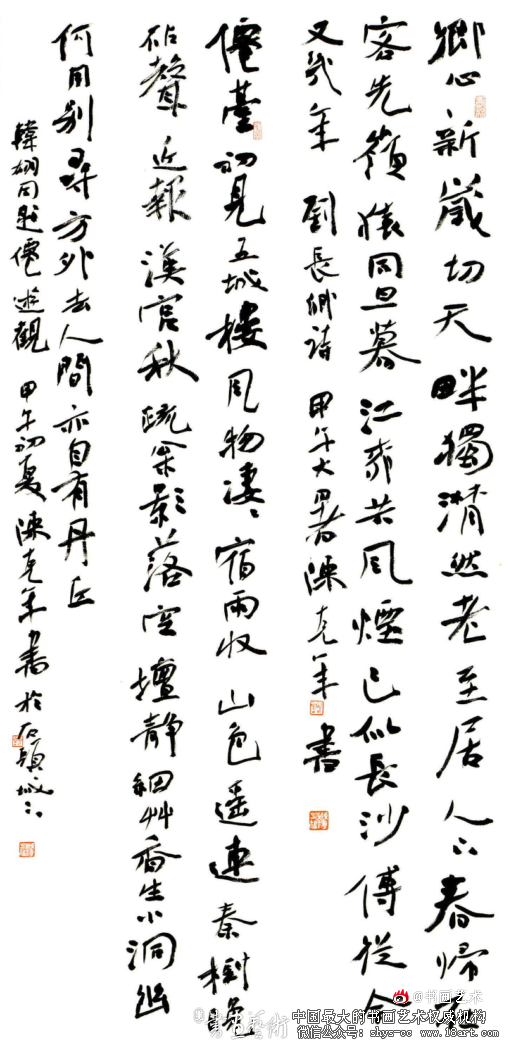 鄉心新歲切天畔獨潸然老至居人下春歸在
客先嶺猿同旦暮江柳共風煙已似長沙傅從今
又幾年 劉長卿詩 甲午大暑陳克年書
僊臺初見五城樓風物淒〻宿雨收山色遥連秦樹晚
砧聲近報漢宮秋疏松影落空壇靜細艸香生小洞幽
何用別尋方外去人間亦自有丹丘
韓翃同題僊遊觀 甲午初夏陳克年書於石頭城下
@书画艺术
中国最大的书画艺术权威机构
微信公众号：shys-cc www.18art.com